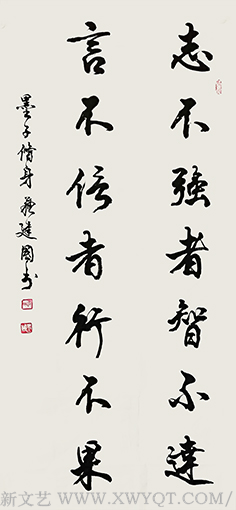 志不强者智不達
言不信者行不果
墨子脩身 蘇建國书
新文艺 WWW.XWYQT.COM/